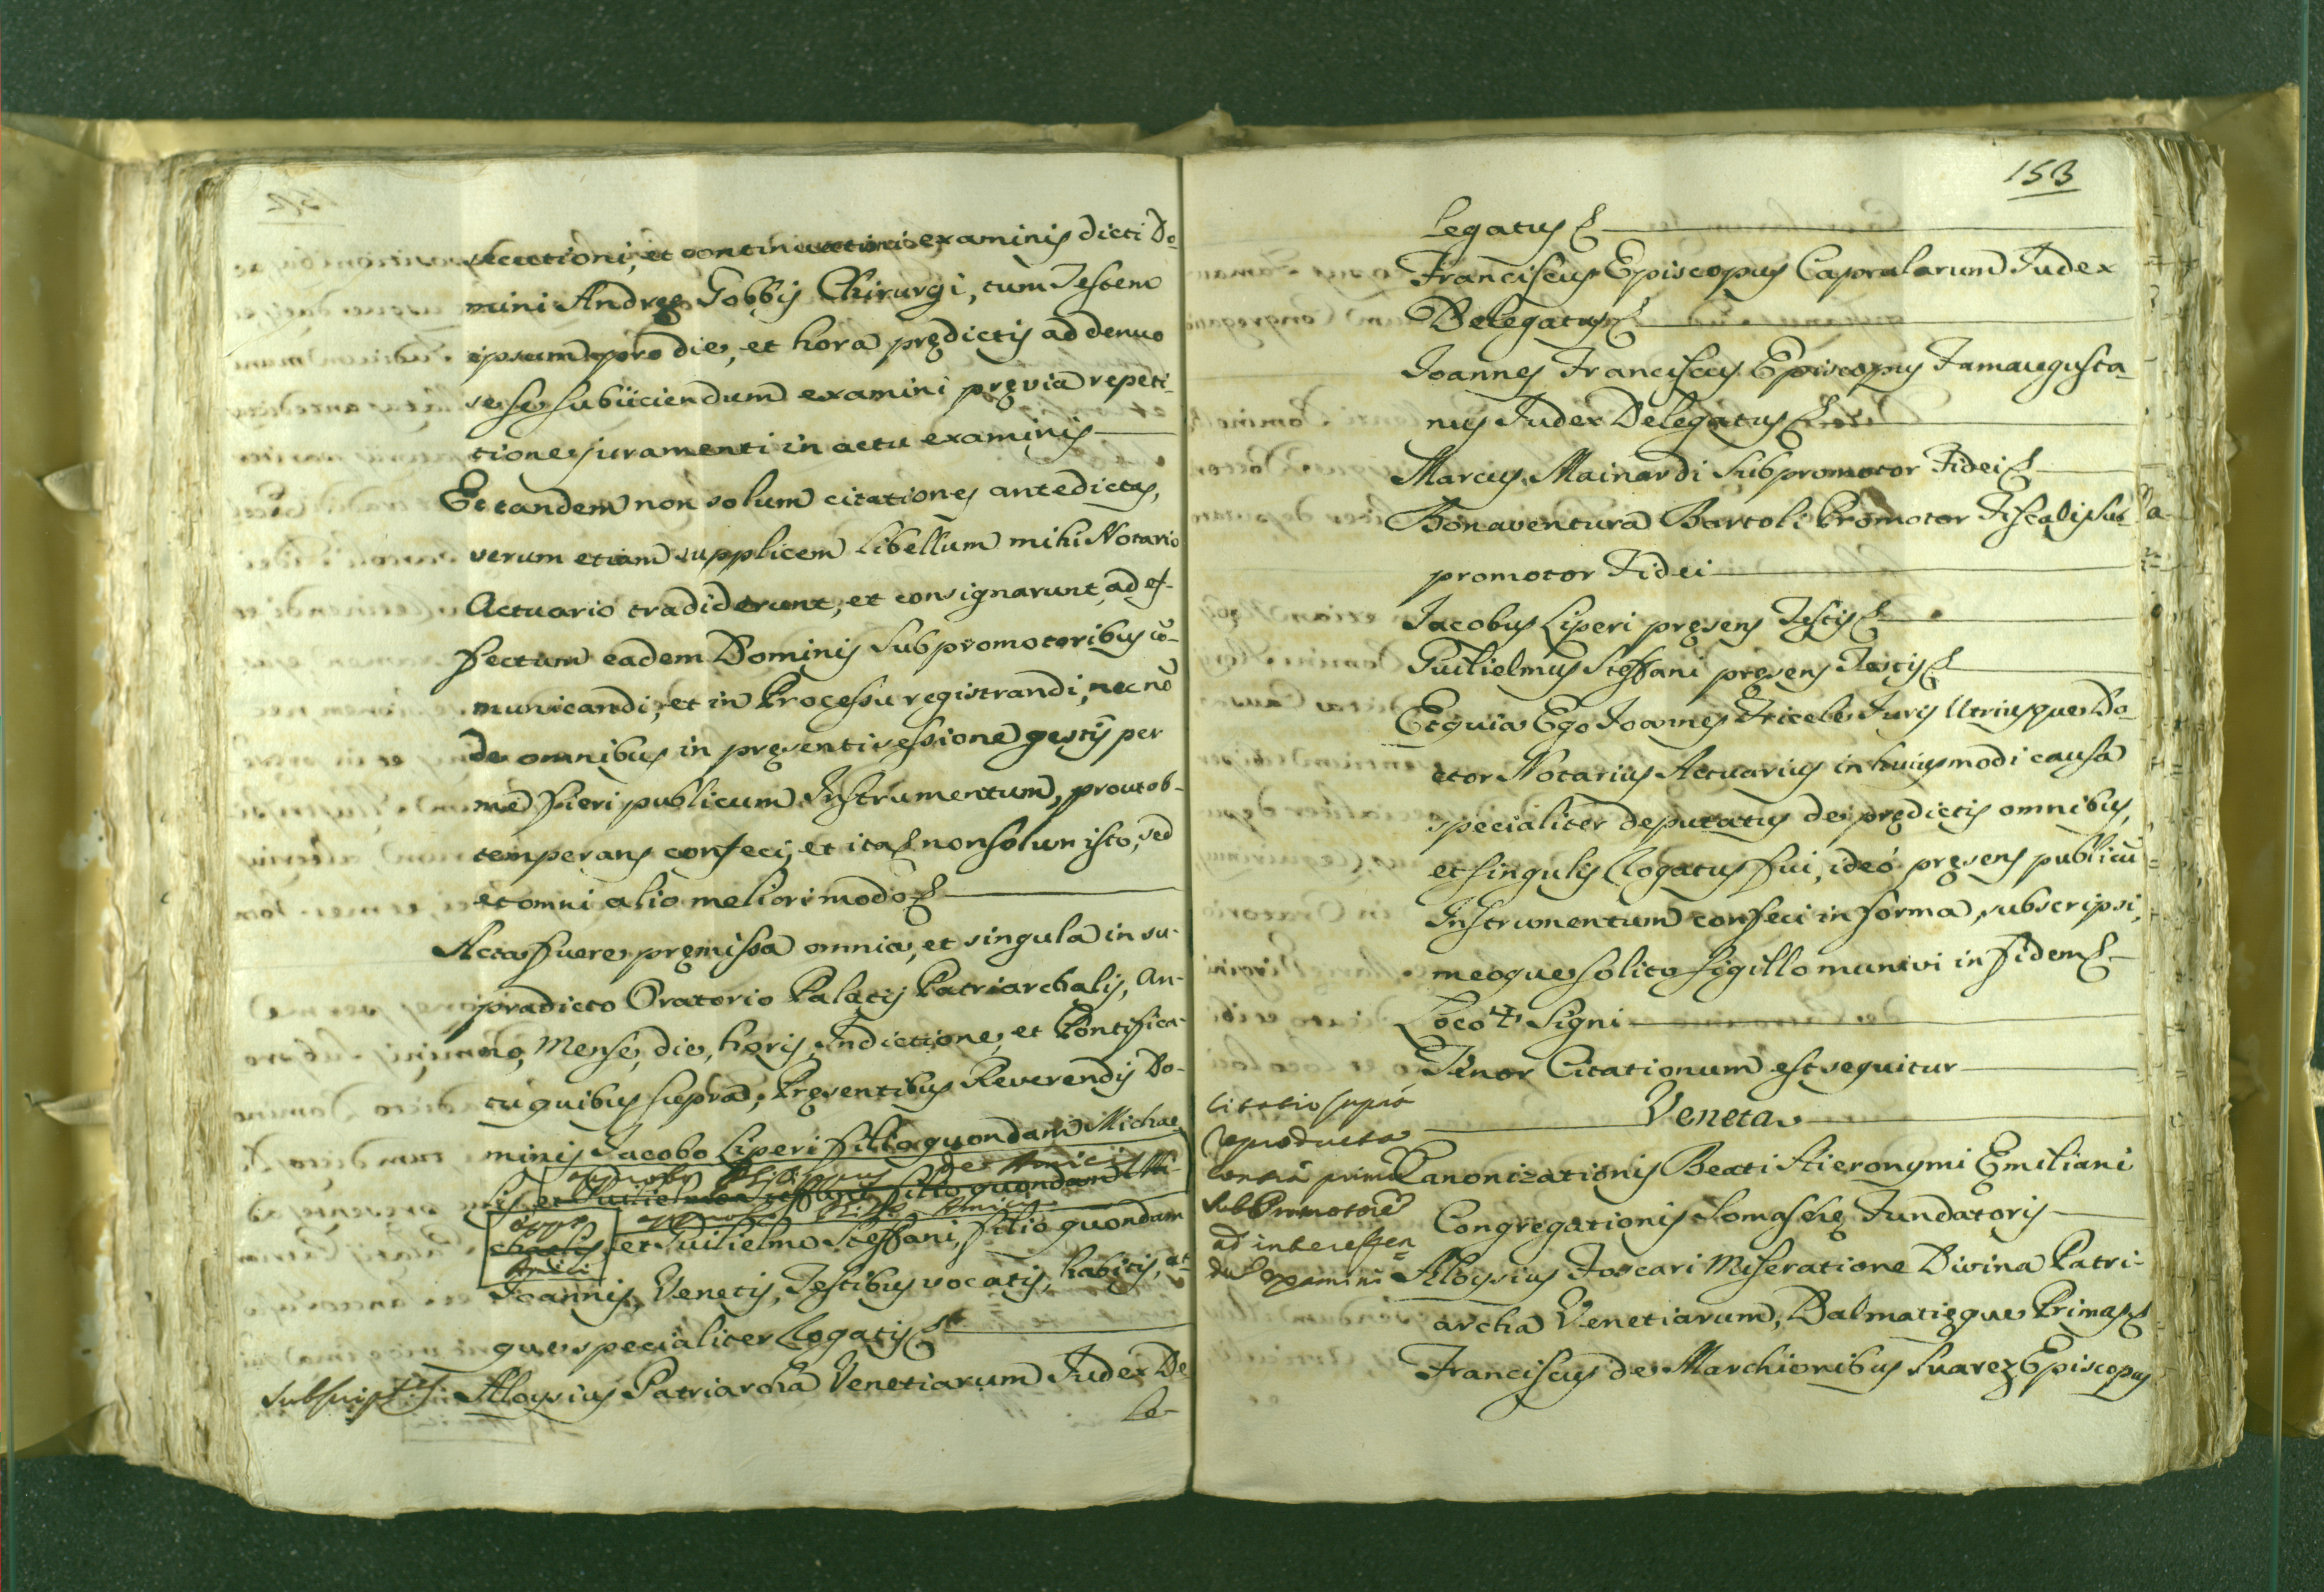 secutioni, et continuationi examinis dicti Do-
mini Andreę Gobbis Chirurgi, tum Testem
ipsum pro die, et hora prędictis ad denuo
sese subijciendum examini pręvia repeti-
tione juramenti in actu examinis
Et tandem non solum citationes antedictas,
verum etiam supplicem libellum mihi Notario
Actuario tradiderunt, et consignarunt ad ef-
fectum eadem Dominis Subpromotoribus cō-
municandi, et in Processu registrandi, nec nō
de omnibus in pręsenti sessione gestis per
me fieri publicum Instrumentum, prout ob-
temperans confeci, et ita non solum isto, sed
et omni alio meliori modo
Acta fuere pręmissa omnia, et singula in su-
pradicto Oratorio Palatij Patriarchalis, An-
no, Mense, die, horis, Indictione, et Pontifica-
tu quibus supra; Pręsentibus Reverendis Do-
minis Jacobo Liperi filio quondam Michae-
lis et Guilielmo Steffani filio quondam Mi-
chaelis et Guilielmo Steffani, filio quondam
Joannis, Venetis, Testibus vocatis, habitis, at-
que specialiter Rogatis
Subscript. Aloysius Patriarcha Venetiarum Judex De
le-
153
legatus
Franciscus Episcopus Caprularum Judex
Delegatus
Joannes Franciscus Episcopus Famaugusta-
nus Judex Delegatus
Marcus Mainardi Subpromotor Fidei
Bonaventura Bartoli Promotor Fiscalis sub
promotor Fidei
Jacobus Liperi pręsens Testis
Guilielmus Steffani pręsens Testis
Et quia Ego Joannes Fricele Juris Utriusque Do-
ctor Notarius Actuarius in huiusmodi causa
specialiter deputatus de prędictis omnibus,
et singulis Rogatus fui, ideò pręsens publicū
Instrumentum confeci in forma, subscripsi,
meoque solito sigillo munivi in fidem
Loco ✠ Signi
Tenor Citationum est sequitur
Veneta
Citatio supra
reproducta
contra primū
subPromotorē
ad interessen
dū examini
Canonizationis Beati Hieronymi Emiliani
Congregationis Somaschę Fundatoris
Aloysius Foscari Miseratione Divina Patri-
archa Venetiarum, Dalmatięque Primas
Franciscus de Marchionibus Suarez Episcopus